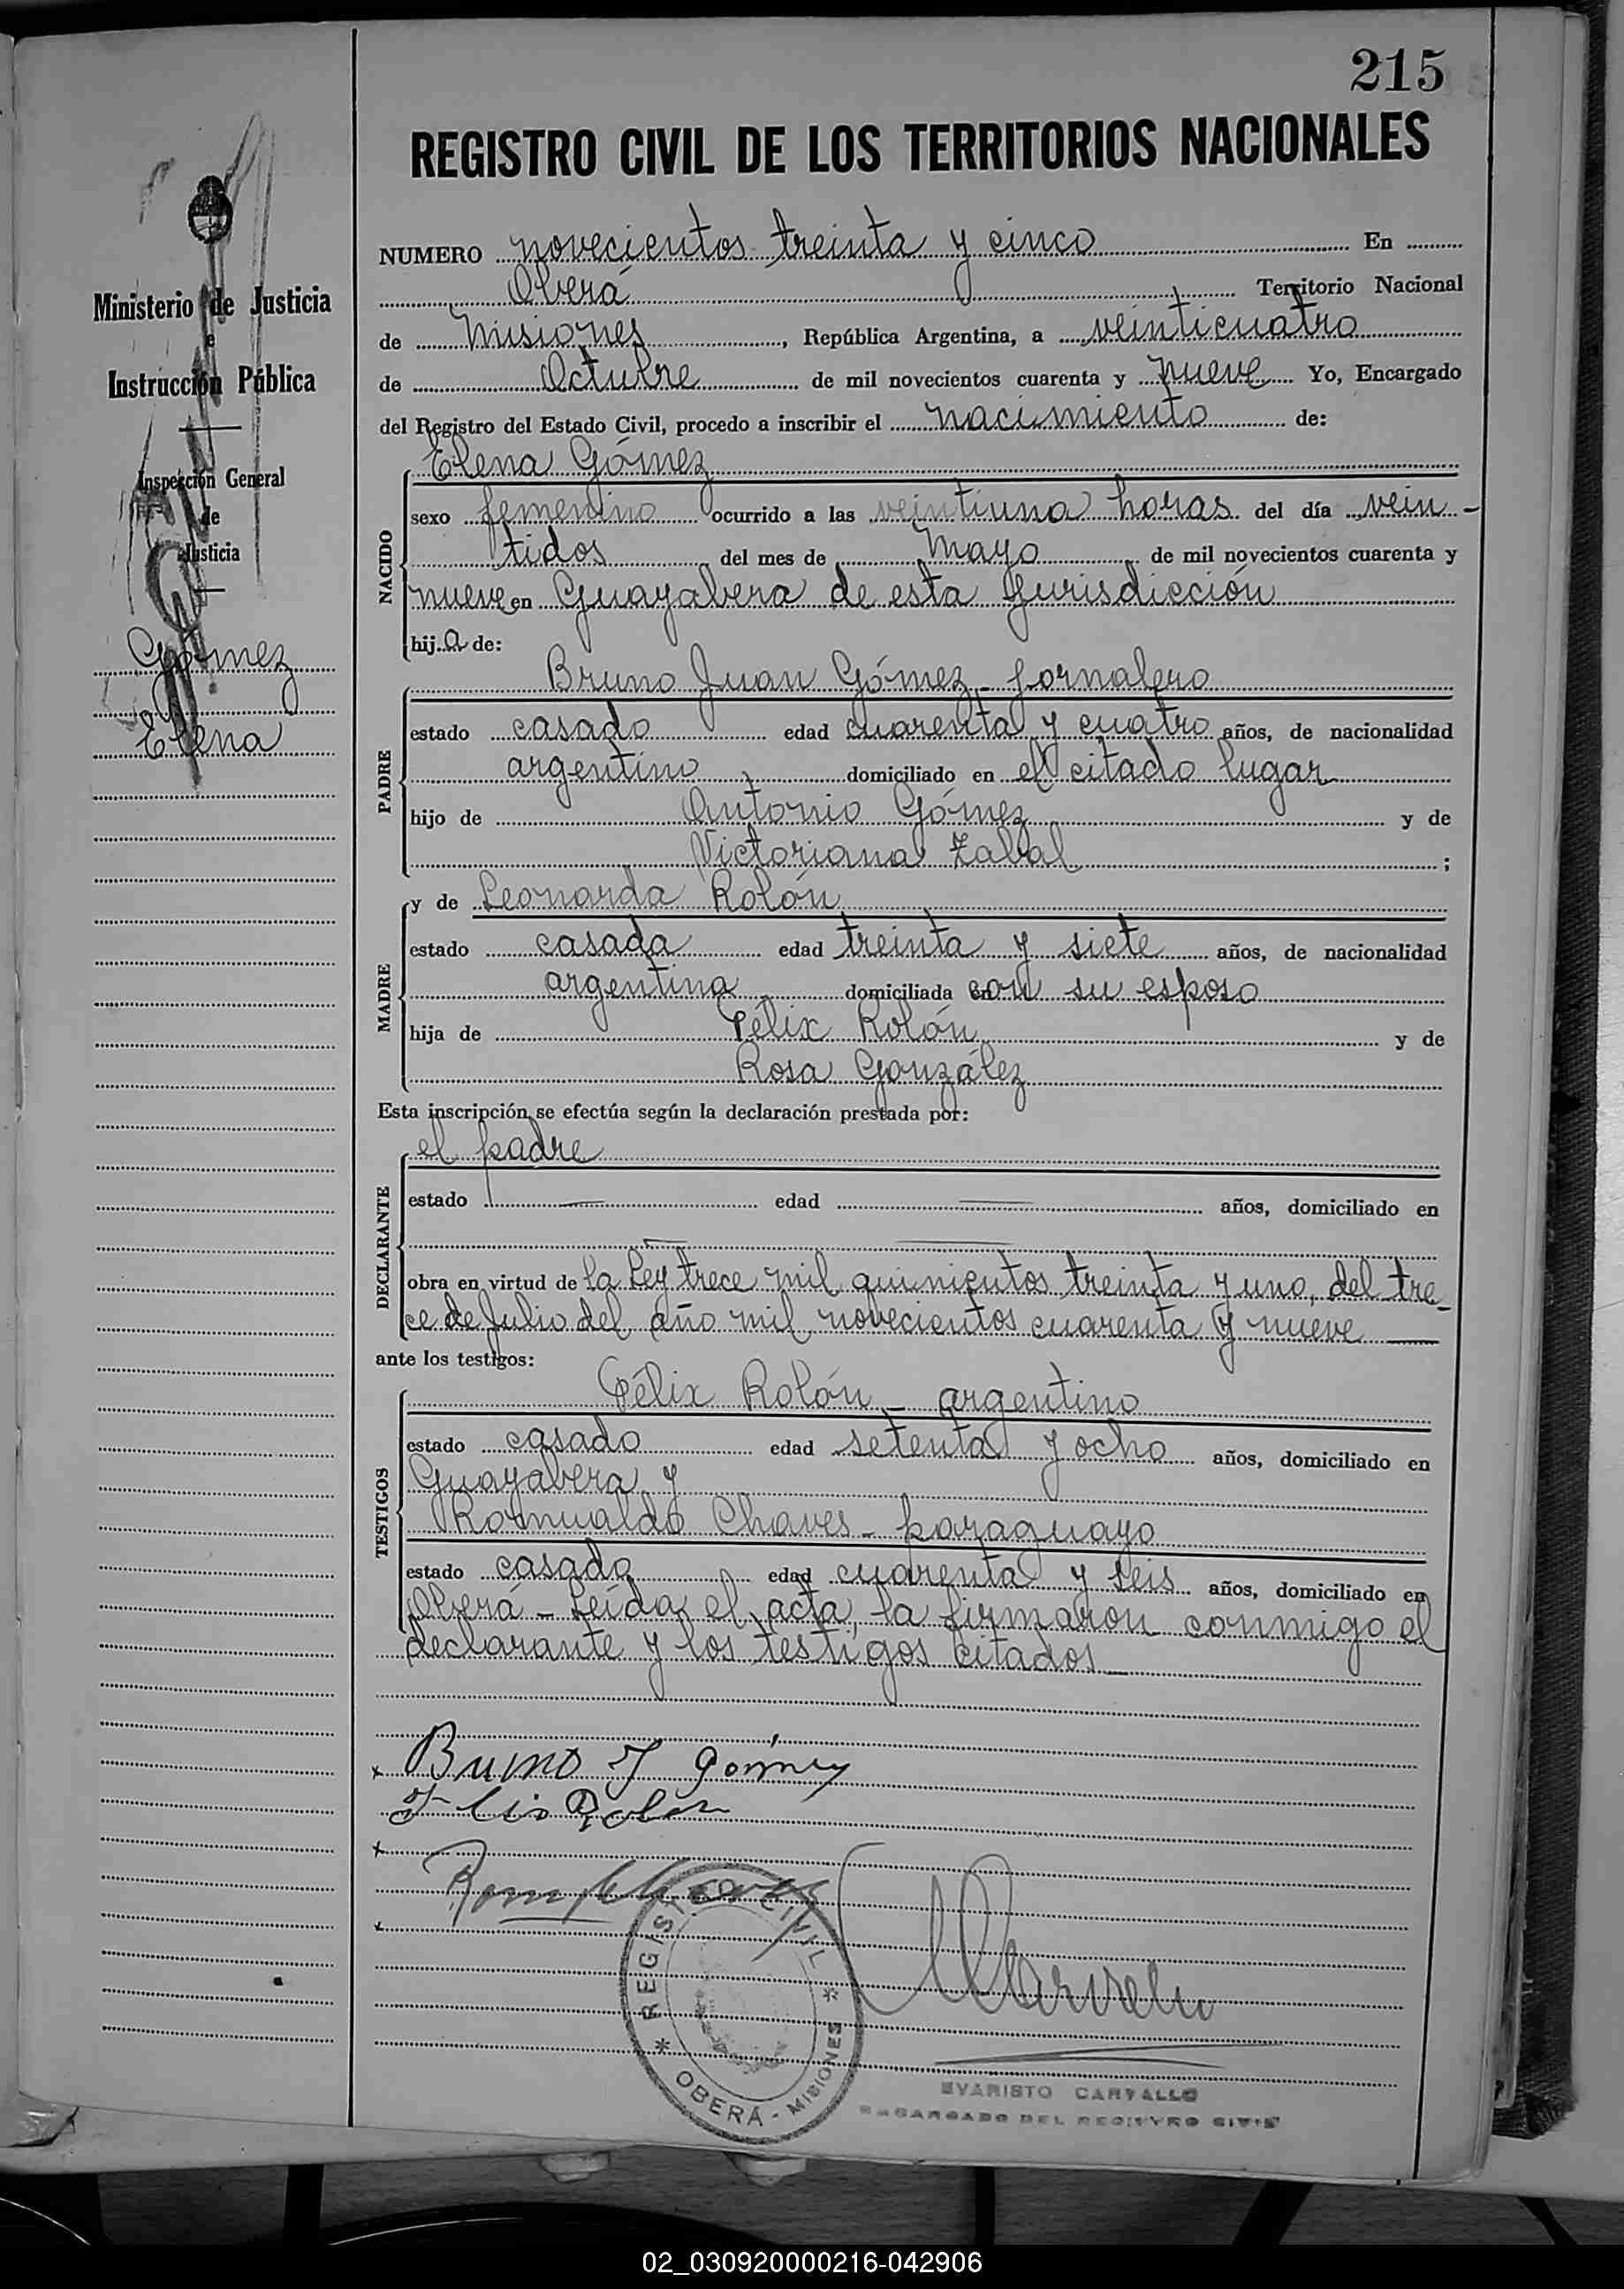 215
REGISTRO CIVIL DE LOS TERRITORIOS NACIONALES
Ministerio de Justicia
e
Instrucción Pública
Inspección General
de
Justicia
Gómez
Elena
NUMERO novecientos treinta y cinco En
Oberá Territorio Nacional
de Misiones, República Argentina, a veinticuatro
de Octubre de mil novecientos cuarenta y nueve Yo, Encargado
del Registro del Estado Civil, procedo a inscribir el nacimiento de:
NACIDO
Elena Gómez
sexo femenino ocurrido a las veintiuna horas del día vein-
tidos del mes de Mayo de mil novecientos cuarenta y
nueve en Guayabera de esta Jurisdicción
hija de:
PADRE
Bruno Juan Gómez - Jornalero
estado casado edad cuarenta y cuatro años, de nacionalidad
argentino domiciliado en el citado lugar
hijo de Antonio Gómez y de
Victoriana Zabal ;
MADRE
y de Leonarda Rolón
estado casada edad treinta y siete años, de nacionalidad
argentina domiciliada con su esposo
hija de Félix Rolón y de
Rosa González
Esta inscripción se efectúa según la declaración prestada por:
DECLARANTE
el padre
estado — edad — años, domiciliado en
obra en virtud de la Ley trece mil quinientos treinta y uno, del tre-
ce de Julio del año mil novecientos cuarenta y nueve
ante los testigos:
TESTIGOS
Félix Rolón - argentino
estado casado edad setenta y ocho años, domiciliado en
Guayabera y
Romualdo Chaves - paraguayo
estado casado edad cuarenta y seis años, domiciliado en
Oberá - Leída el acta, la firmaron conmigo el
declarante y los testigos citados
Bruno J Gómez
Felis Rolon
REGISTRO CIVIL
* OBERÁ - MISIONES *
EVARISTO CARVALLO
ENCARGADO DEL REGISTRO CIVIL
02_030920000216-042906